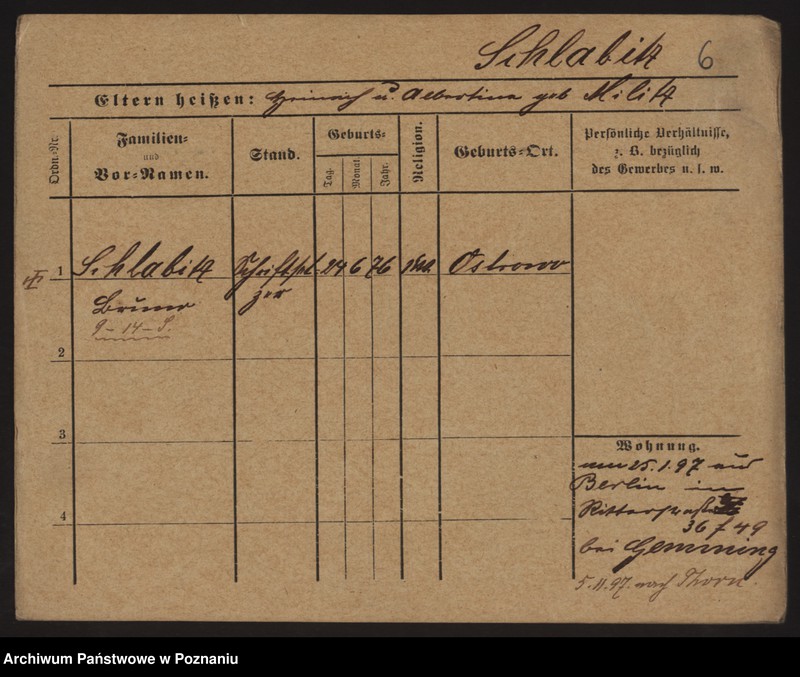 Schlabitz 6
Eltern heißen: Heinrich u. Albertina geb Militz
Ordn.-Nr.
Familien-
und
Vor-Namen.
Stand.
Geburts-
Tag.
Monat.
Jahr.
Religion.
Geburts-Ort.
Persönliche Verhältnisse,
z. B. bezüglich
des Gewerbes u. s. w.
1 Schlabitz Schriftset 24 6 76 Ostrowo
Bruno zer
9-14-S.
2
3
4
Wohnung.
25.1.97 aus
Berlin in
Ritterstraße
36 f 49
bei Gemming
5.11.97. nach Thorn.
Archiwum Państwowe w Poznaniu